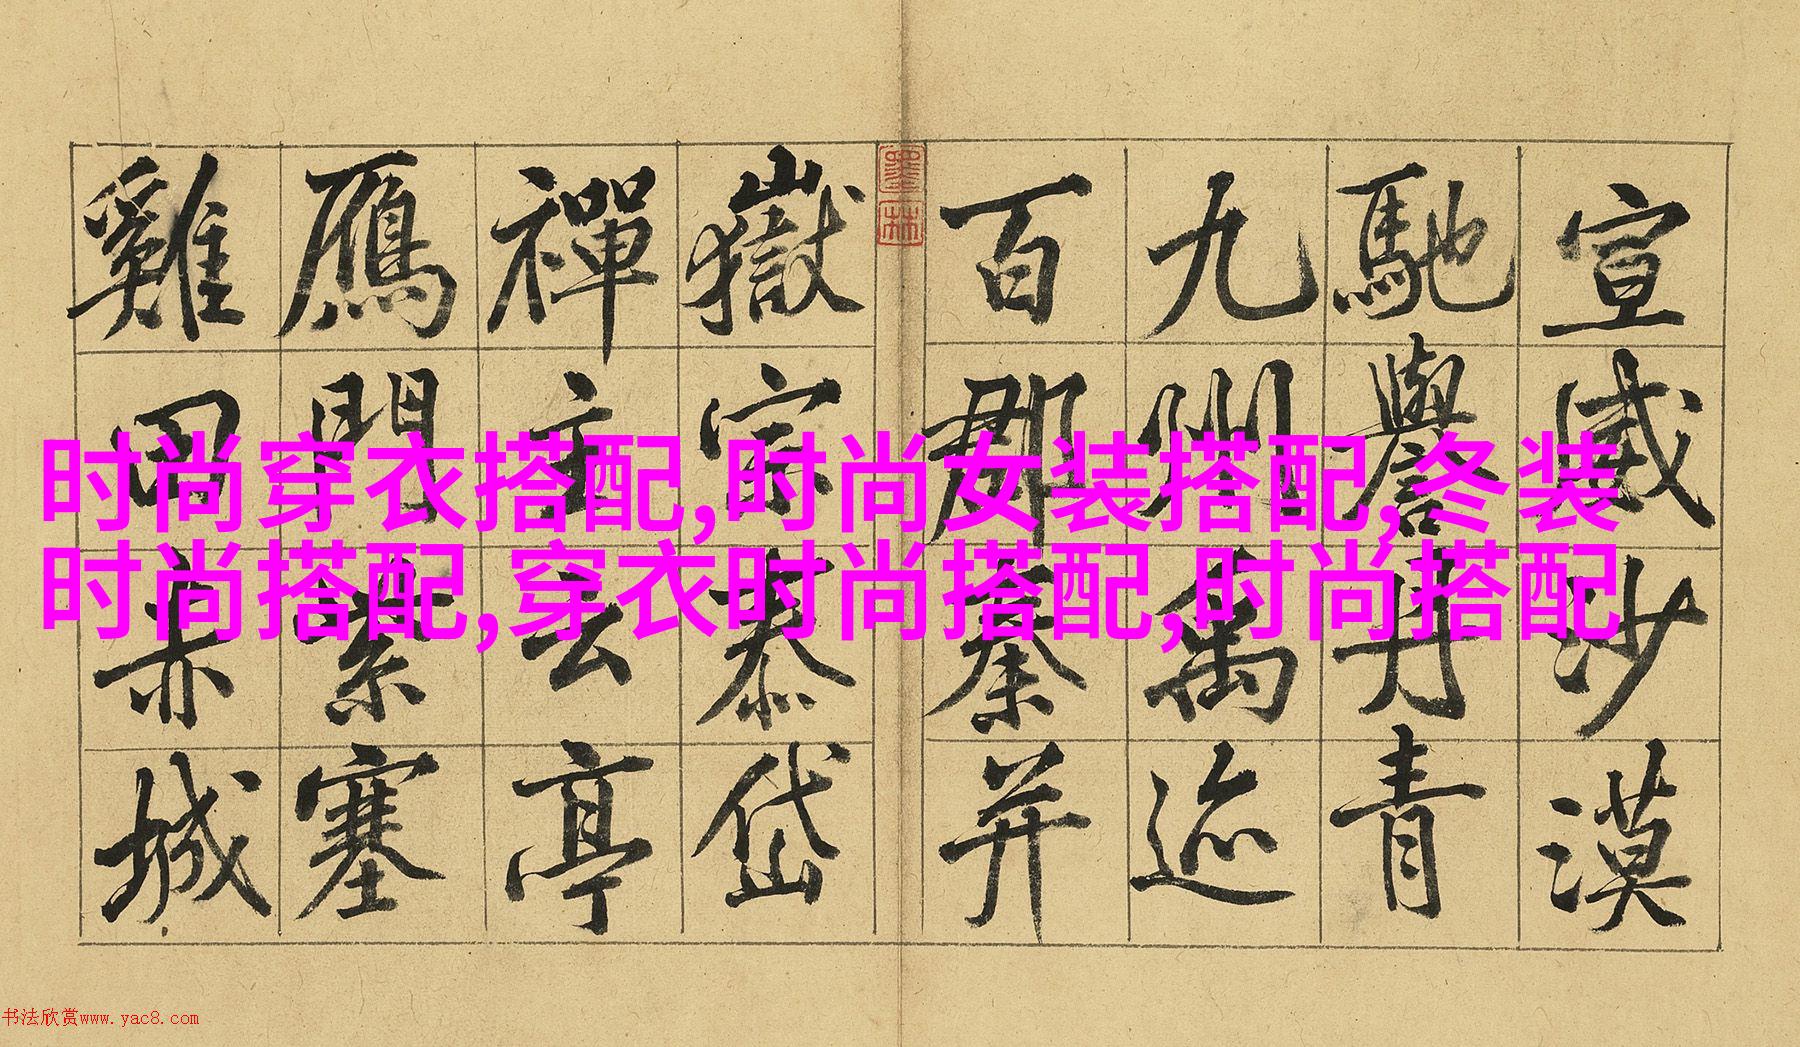 宣威沙漠
馳譽丹青
九州禹迹
百郡秦并
墨林
嶽宗泰岱
禪主云亭
鴈門紫塞
雞田赤城
时尚穿衣搭配,时尚女装搭配,冬装
时尚搭配,穿衣时尚搭配,时尚搭配
书法欣赏www.yac8.com